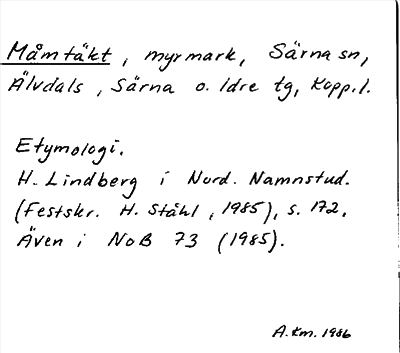 Måmtäkt, myrmark, Särna sn,
Älvdals, Särna o. Idre tg, Kopp.l.
Etymologi.
H. Lindberg i Nord. Namnstud.
(Festskr. H. Ståhl, 1985), s. 172.
Även i NoB 73 (1985).
A.Km. 1986